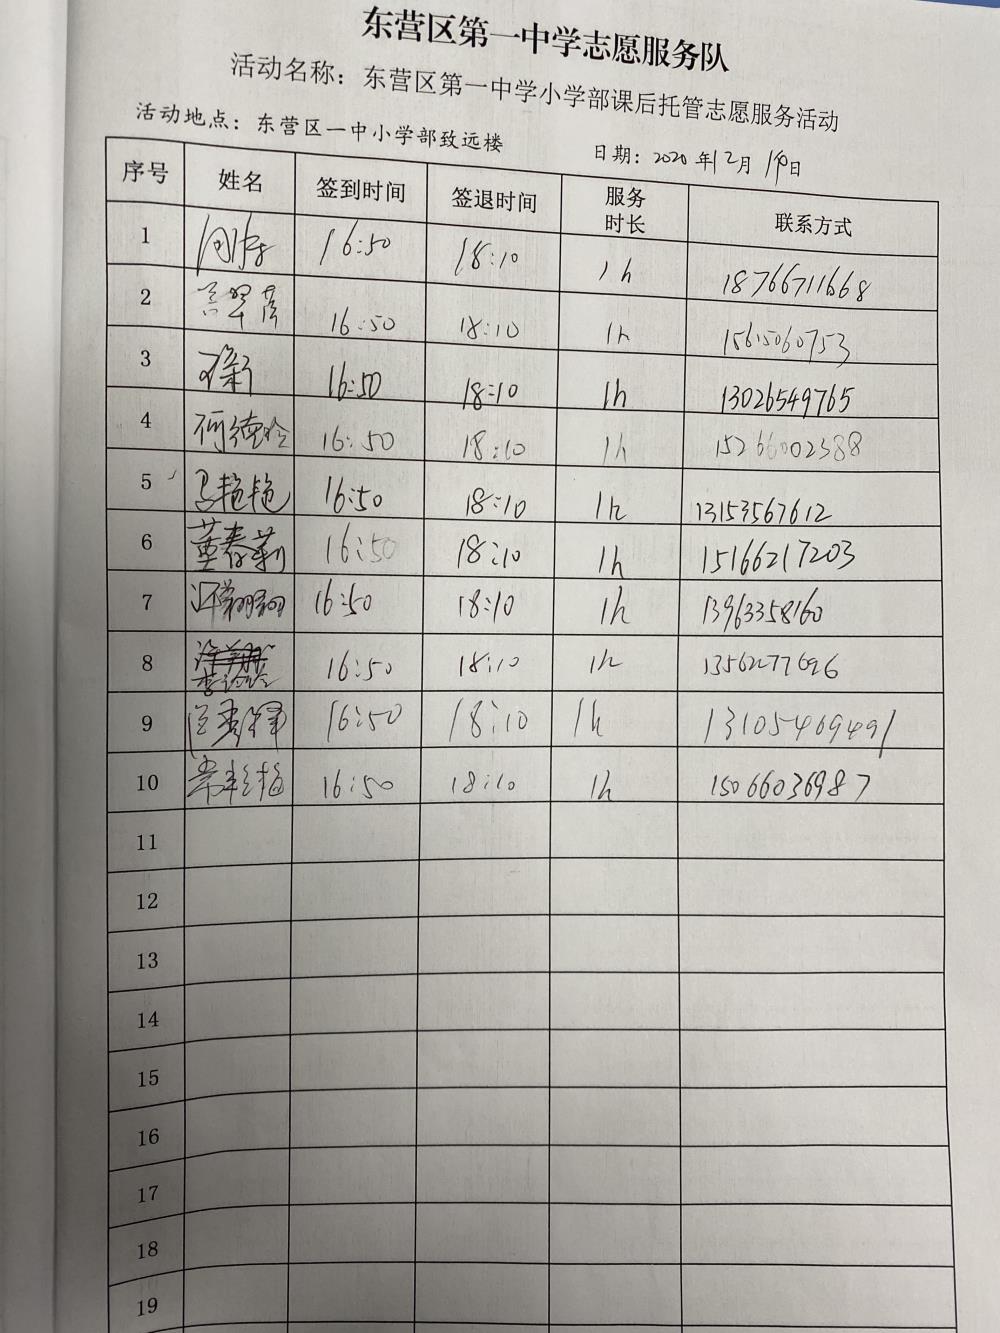 东营区第一中学志愿服务队
活动名称：东营区第一中学小学部课后托管志愿服务活动
活动地点：东营区一中小学部致远楼 日期：2020年12月 日
序号 姓名 签到时间 签退时间 服务时长 联系方式
1 16:50 18:10 1h 18766711668
2 16:50 18:10 1h 15615060753
3 16:50 18:10 1h 13026549765
4 16:50 18:10 1h 15266002388
5 马艳艳 16:50 18:10 1h 13153567612
6 董春莉 16:50 18:10 1h 15166217203
7 16:50 18:10 1h 13963358160
8 16:50 18:10 1h 1356277696
9 16:50 18:10 1h 13105469491
10 常彩梅 16:50 18:10 1h 15066036987
11
12
13
14
15
16
17
18
19